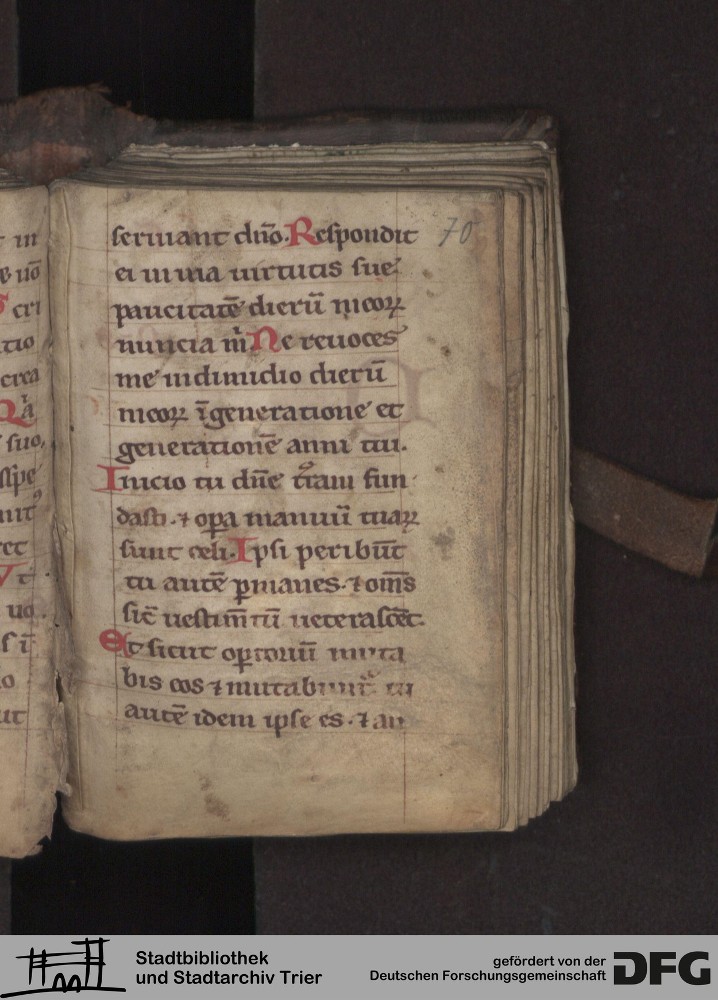 seruiant dn̄o. Respondit 70
ei in uia uirtutis sue
paucitatē dierū meoꝝ
nuncia m̄. Ne reuoces
me indimidio dierū
meoꝝ ī generatione et
generationē anni tui.
Inicio tu dn̄e t̄ram fun
dasti. ⁊ oꝑa manuū tuaꝝ
sunt celi. Ipsi peribūt
tu autē ꝑmanes. ⁊ om̄s
sic̄ uestim̄tū ueterascēt.
Et sicut oꝑtoriū muta
bis eos ⁊ mutabunt̃ tu
autē idem ipse es. ⁊ an
t in
cri
tio
crea
Qͥa
suo,
ret
Vt
uo.
s ī
ut
Stadtbibliothek
und Stadtarchiv Trier
gefördert von der
Deutschen Forschungsgemeinschaft DFG